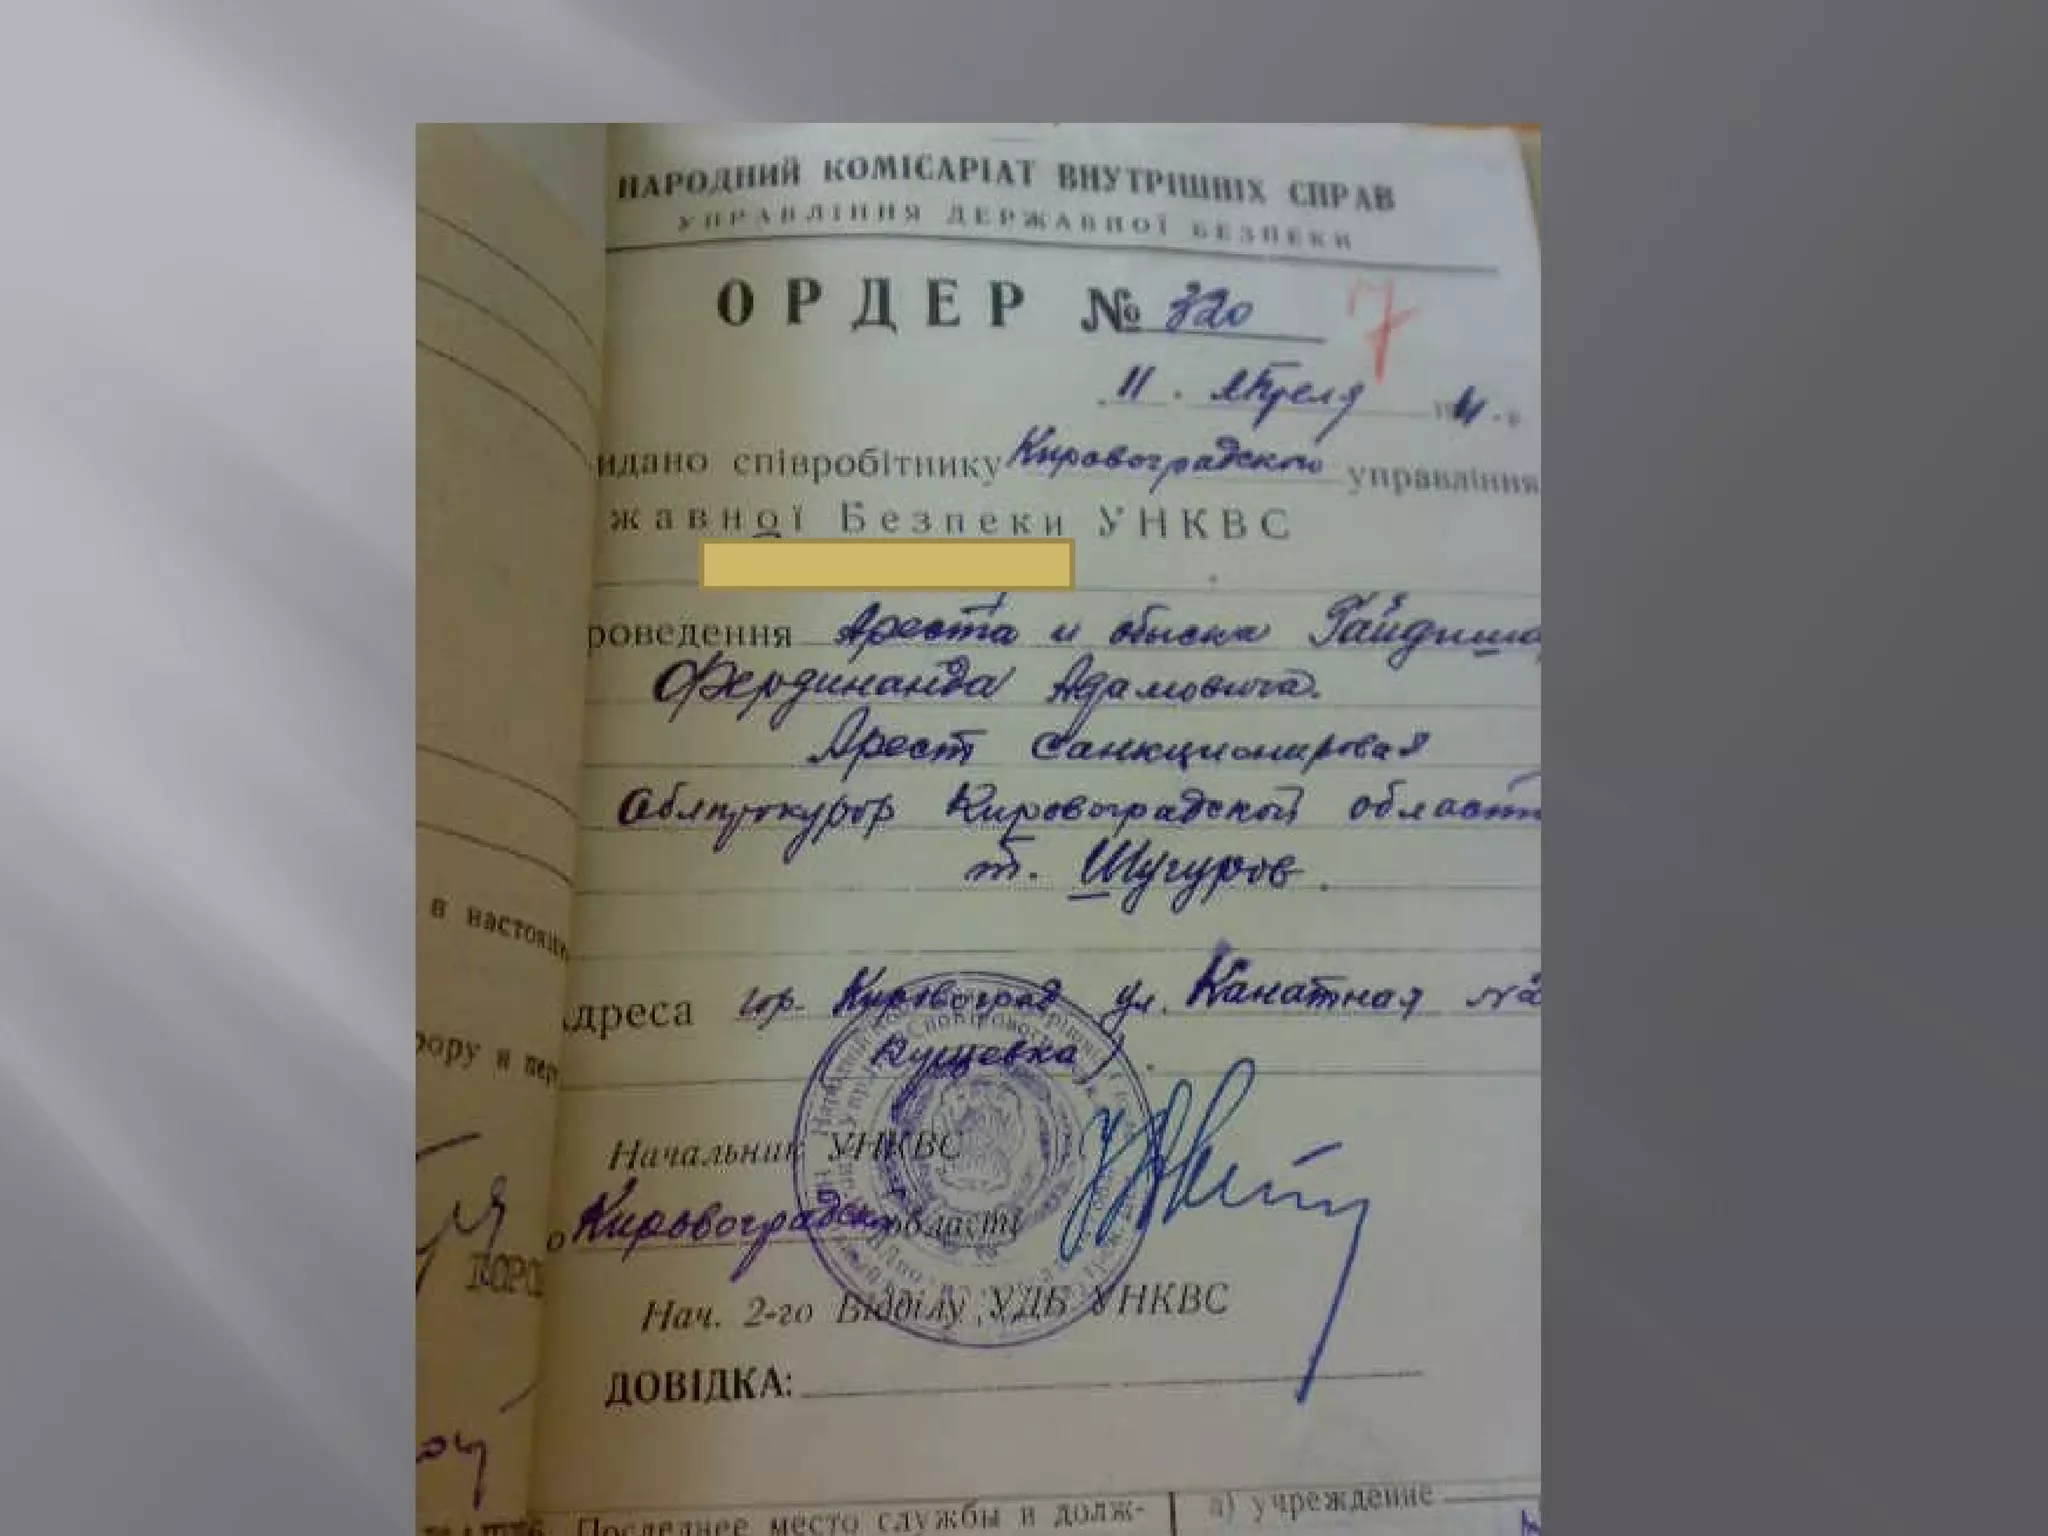 НАРОДНИЙ КОМІСАРІАТ ВНУТРІШНІХ СПРАВ
УПРАВЛІННЯ ДЕРЖАВНОЇ БЕЗПЕКИ
ОРДЕР № 320
7
11 Апреля
идано співробітнику Кировоградского управління
жавної Безпеки УНКВС
роведення Ареста и обыска Гайдиша
Фердинанда Адамовича.
Арест санкционировал
Облпрокурор Кировоградской област
т. Шугуров.
дреса гор. Кировоград ул. Канатная №2
Кущевка)
Начальник УНКВС
о Кировоградск області
Нач. 2-го Відділу УДБ УНКВС
ДОВІДКА:
в настоя
рору и пер
Последнее место службы и долж-
а) учреждение